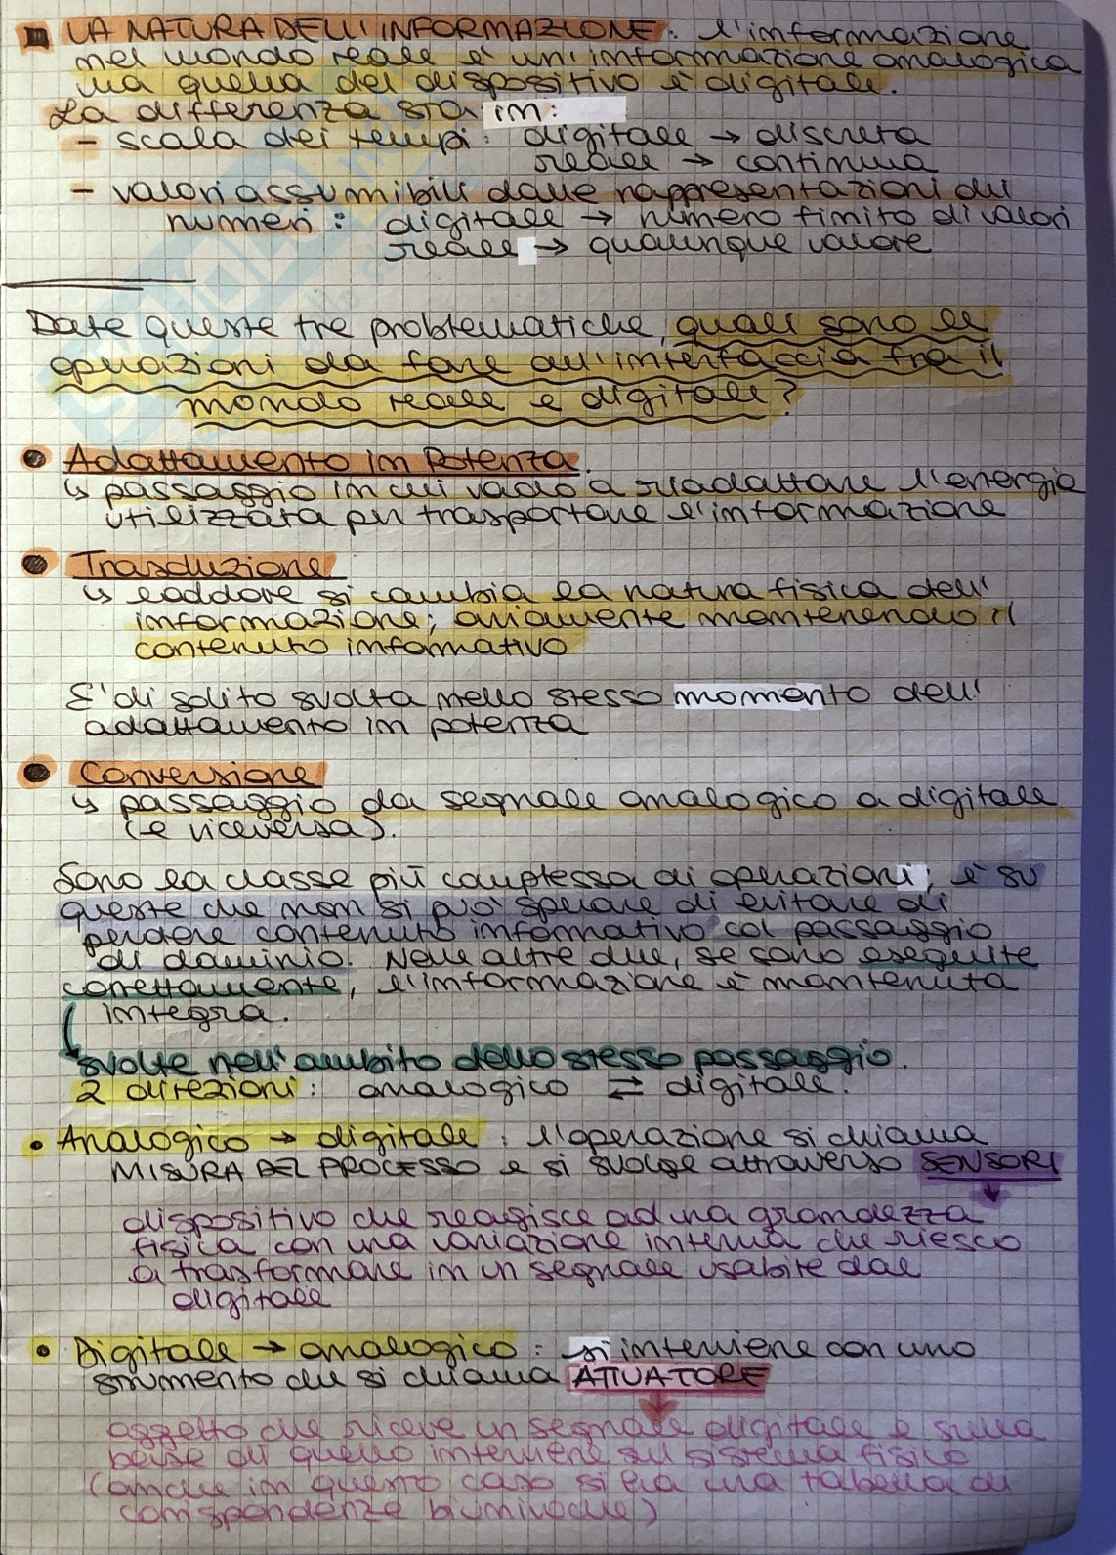 LA NATURA DELL'INFORMAZIONE: l'informazione
nel mondo reale è un'informazione analogica
ma quella del dispositivo è digitale.
La differenza sta in:
- scala dei tempi: digitale → discreta
reale → continua
- valori assumibili dalle rappresentazioni dei
numeri: digitale → numero finito di valori
reale → qualunque valore
Date queste tre problematiche, quali sono le
operazioni da fare all'interfaccia fra il
mondo reale e digitale?
• Adattamento in Potenza.
↳ passaggio in cui vado a riadattare l'energia
utilizzata per trasportare l'informazione
• Trasduzione
↳ laddove si cambia la natura fisica dell'
informazione; ovviamente mantenendo il
contenuto informativo
E' di solito svolta nello stesso momento dell'
adattamento in potenza
• Conversione
↳ passaggio da segnale analogico a digitale
(e viceversa).
Sono la classe più complessa di operazioni, è su
queste che non si può sperare di evitare di
perdere contenuto informativo col passaggio
di dominio. Nelle altre due, se sono eseguite
correttamente, l'informazione è mantenuta
integra.
svolte nell'ambito dello stesso passaggio.
2 direzioni: analogico ⇄ digitale.
• Analogico → digitale: l'operazione si chiama
MISURA DEL PROCESSO e si svolge attraverso SENSORI
dispositivo che reagisce ad una grandezza
fisica con una variazione interna che riesco
a trasformare in un segnale usabile dal
digitale
• Digitale → analogico: si interviene con uno
strumento che si chiama ATTUATORE
oggetto che riceve un segnale digitale e sulla
base di quello interviene sul sistema fisico
(anche in questo caso si ha una tabella di
corrispondenze biunivoche)